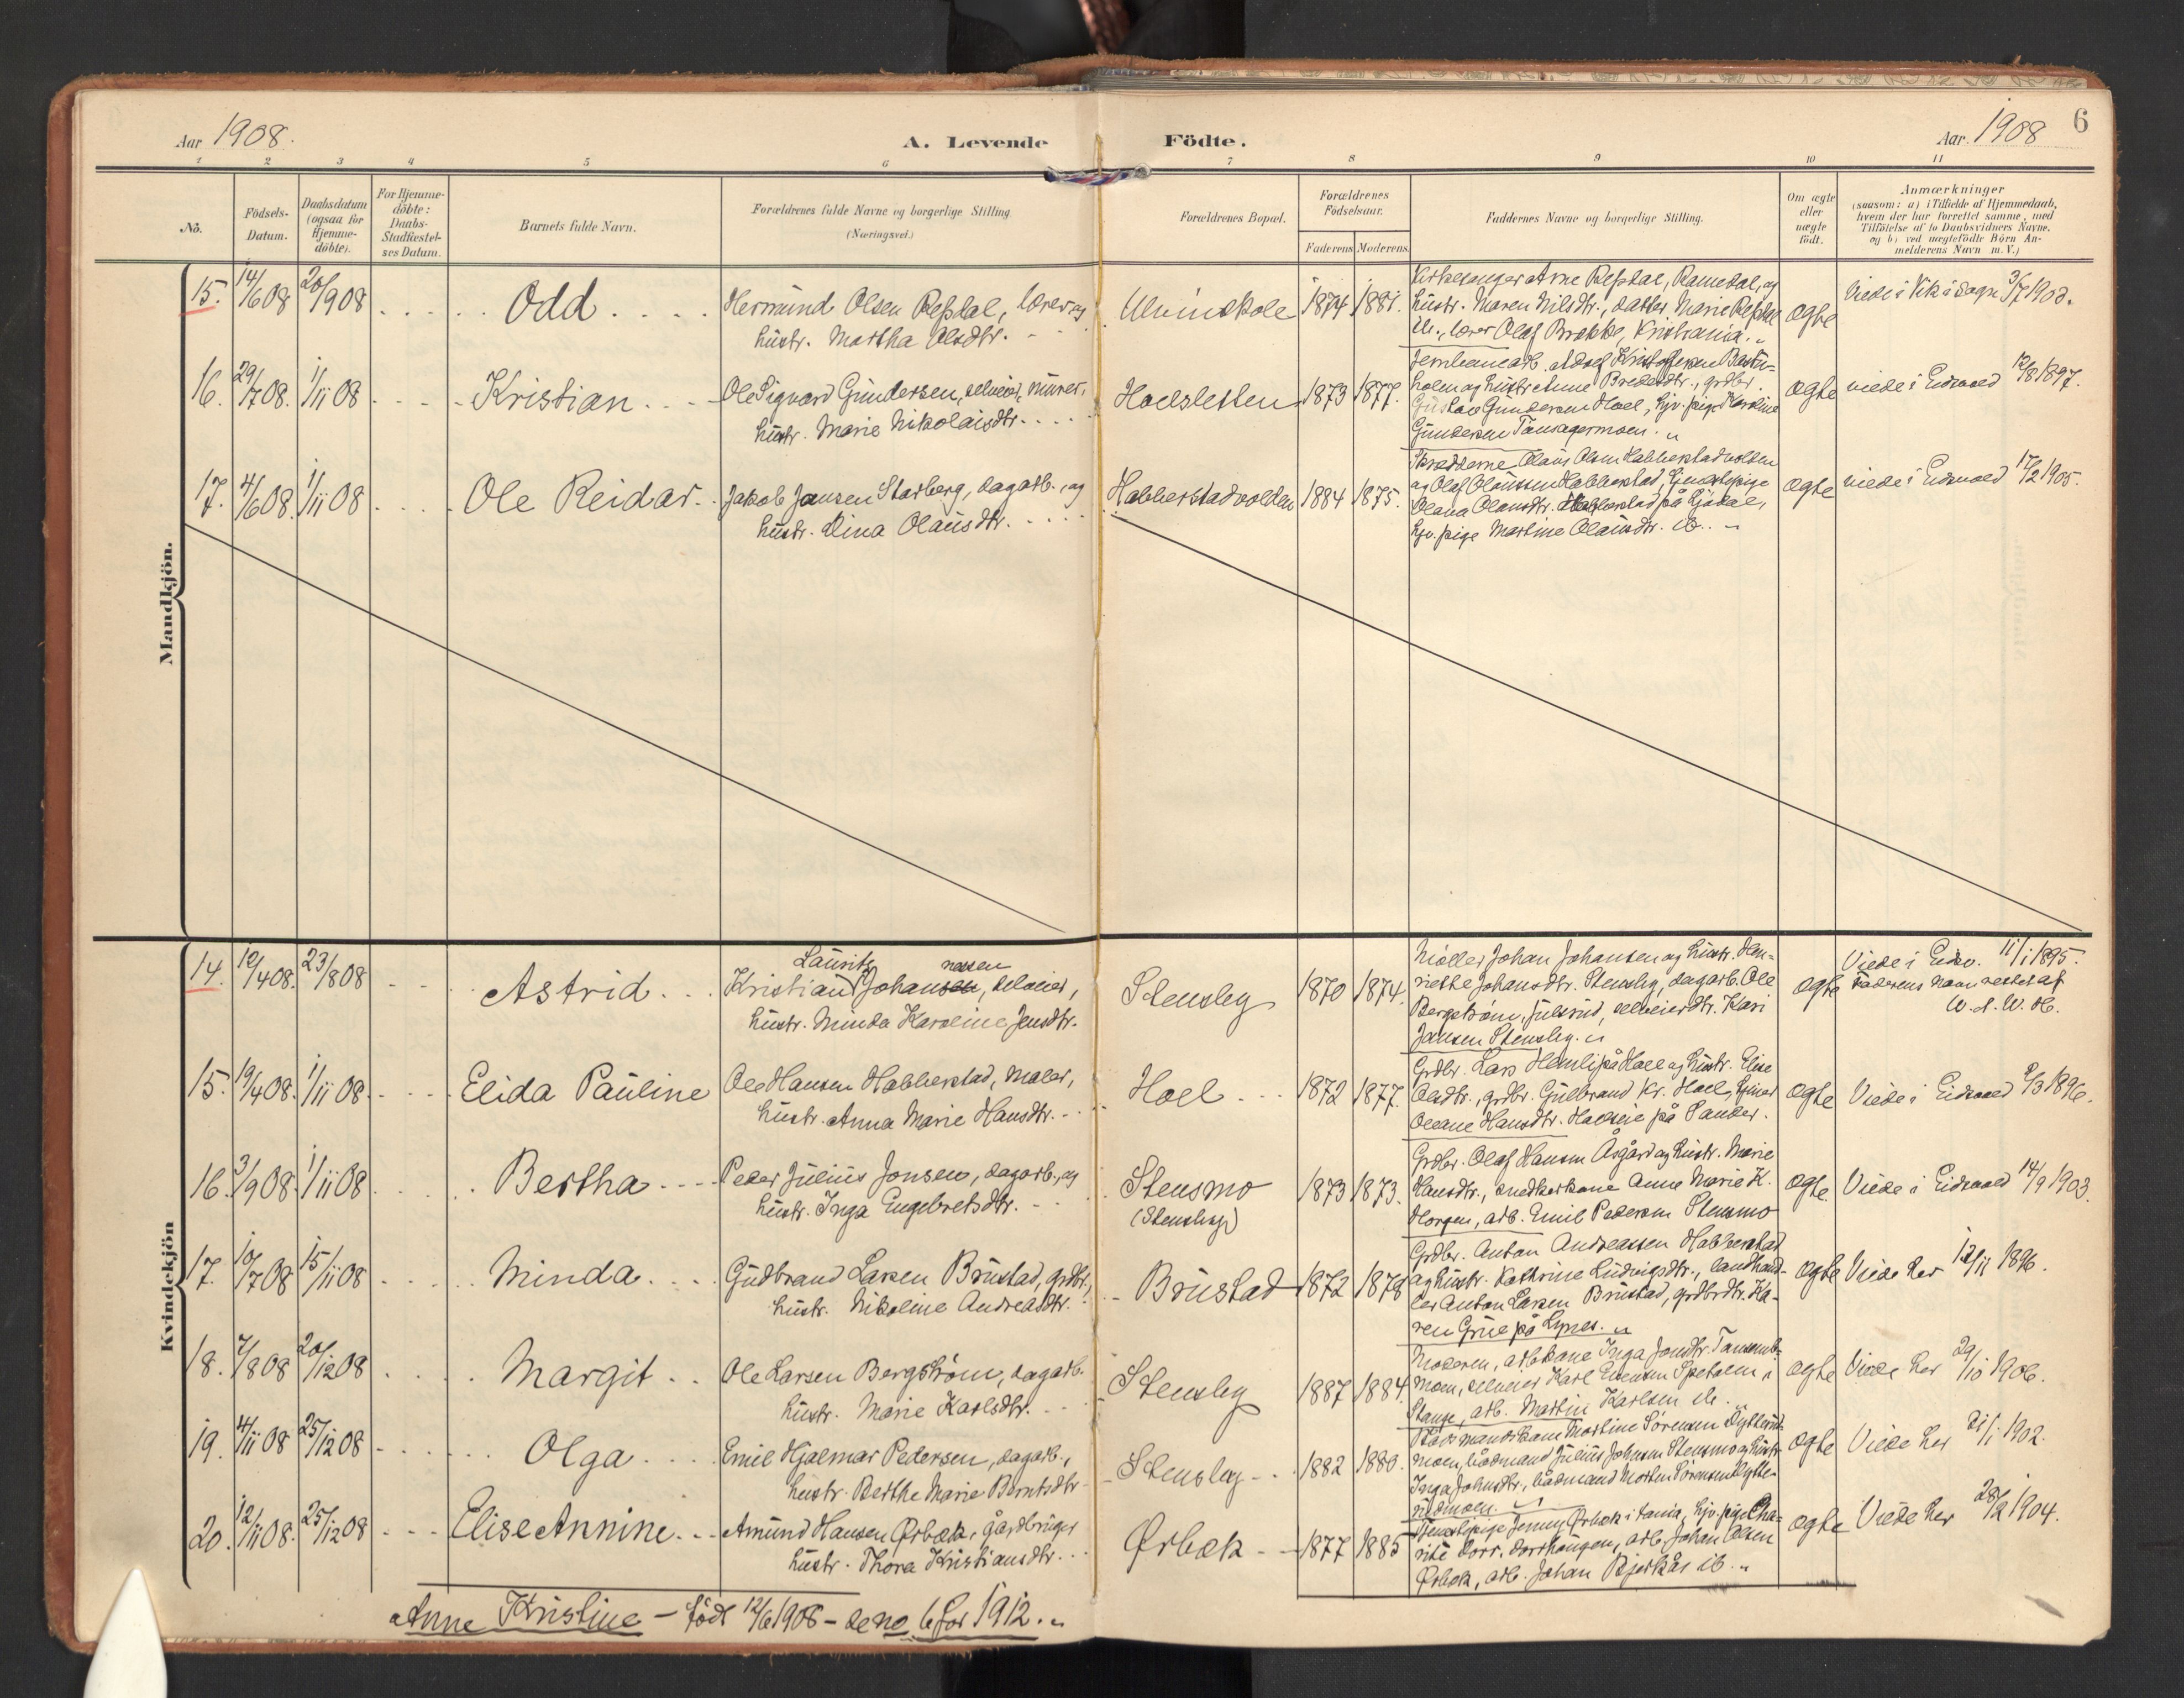 Aar 1908.
A. Levende
Födte.
Aar. 1908
6
1 2 3 4 5 6 7 8 9 10 11
No.
Födsels-
Datum.
Daabsdatum
(ogsaa for
Hjemme-
döbte).
For Hjemme-
döbte:
Daabs-
Stadfæstel-
ses Datum.
Barnets fulde Navn.
Forældrenes fulde Navne og borgerlige Stilling
(Næringsvei.)
Forældrenes Bopæl.
Forældrenes
Födselsaar.
Faderens Moderens
Faddernes Navne og borgerlige Stilling.
Om ægte
eller
uægte
födt.
Anmærkninger
(saasom: a) i Tilfælde af Hjemmedaab,
hvem der har forrettet samme, med
Tilföielse af to Daabsvidners Navne.
og b) ved uægtefödte Börn An-
melderens Navn m. V.)
Mandkjön.
15. 14/6 08 20/9 08 Odd
Hermund Olsen Refsdal, lærer og
hustr. Martha Olsdtr.
Ulvinskole 1874 1881.
Kirkesanger Arne Refsdal, Ramedal, og
hustr. Maren Nilsdtr., datter Marie Refsdal
ib., lærer Olaf Brække, Kristiania.
ægte
Viede i Vik i Sogn 3/7 1903.
16. 29/7 08. 1/11 08 Kristian
Ole Sigvard Gundersen, selveier, murer,
hustr. Marie Nikolaisdtr.
Hoelsletten 1873 1877.
Jernbanearb. Adolf Kristoffersen
holm og hustr. Anne grdbr.
Gustav Gundersen Hoel, hjv. pige Karoline
Gundersen
ægte
viede i Eidsvold 12/8 1897.
17. 4/6 08. 1/11 08 Ole Reidar
Jakob Jansen Starberg, dagarb., og
hustr. Dina Olausdtr.
Habberstadvolden 1884 1875.
Skrædderne Olaus Olsen Habberstadvolden
og Olaf Olaussen Habberstad, tjenestepige
Olava Olausdtr. Habberstad på
hjv. pige Martine Olausdtr. ib.
ægte
viede i Eidsvold 17/2 1905.
Kvindekjön
14. 12/4 08. 23/8 08 Astrid
Lauritz nessen
Kristian Johansen, selveier,
hustr. Minda Karoline Jensdtr.
Stensby 1870 1874.
Møller Johan Johansen og hustr. Hen-
riette Johansdtr. Stensby, dagarb. Ole
Bergstrøm, Julsrud, selveierdtr. Kari
Jansen Stensby.
ægte
Viede i Eidsv. 11/1 1895.
Faderens navn rettet af
15. 19/4 08. 1/11 08. Elida Pauline
Ole Hansen Habberstad, maler,
hustr. Anna Marie Hansdtr.
Hoel 1872 1877.
Grdbr. Lars Hemli på Hoel og hustr. Elise
Olsdtr., grdbr. Gulbrand Kr. Hoel,
Oleane Hansdtr. Hoelseie på Sander.
ægte
Viede i Eidsvold 2/3 1896.
16. 3/9 08. 1/11 08 Bertha
Peder Julius Jonsen, dagarb., og
hustr. Inga Engebretsdtr.
Stensmo
(Stensby) 1873 1873.
Grdbr. Olaf Hansen Åsgård og hustr. Marie
Hansdtr., snedkerkone Anne Marie K.
Horgen, arb. Emil Pedersen Stensmo
ægte.
Viede i Eidsvold 14/9 1903.
17. 10/7 08 15/11 08 Minda
Gudbrand Larsen Brustad, grdbr.,
hustr. Nikoline Andreasdtr.
Brustad 1872 1878
Grdbr. Anton Andreassen Habberstad
og hustr. Kathrine Ludvigsdtr., landhand-
ler Anton Larsen Brustad, grdbrdtr. Ka-
ren Grue på Lynes.
ægte
Viede her 12/11 1896.
18. 7/8 08 20/12 08 Margit
Ole Larsen Bergstrøm, dagarb.
hustr. Marie Karlsdtr.
Stensby 1887 1884.
Moderen, arbkone Inga Jonsdtr.
moen, selveier Karl Evensen Speholm i
Stange, arb. Martin Karlsen ib.
ægte
Viede her 29/10 1906.
19. 4/11 08 25/12 08 Olga
Emil Hjalmar Pedersen, dagarb.,
hustr. Berthe Marie Berntsdtr
Stensby 1882 1880.
Martine Sørensen
moen, bådmand Julius Johnsen Stensmo og hustr.
Inga Johnsdtr., bådmand Morten Sørensen Nytte-
rudmoen.
ægte
Viede her 21/1 1902.
20. 12/11 08. 25/12 08 Elise Annine
Amund Hansen Ørbæk, gårdbruger
hustr. Thora Kristiansdtr.
Ørbæk 1877 1885
Tjenestepige Jenny Ørbæk i tania, hjv. pige Cha-
rite Dorr, Dorrhaugen, arb. Johan Olsen
Ørbæk, arb. Johan Bjerkås ib.
ægte
Viede her 28/2 1904.
Anne Kristine - født 12/6 1908 - se no 6 for 1912.